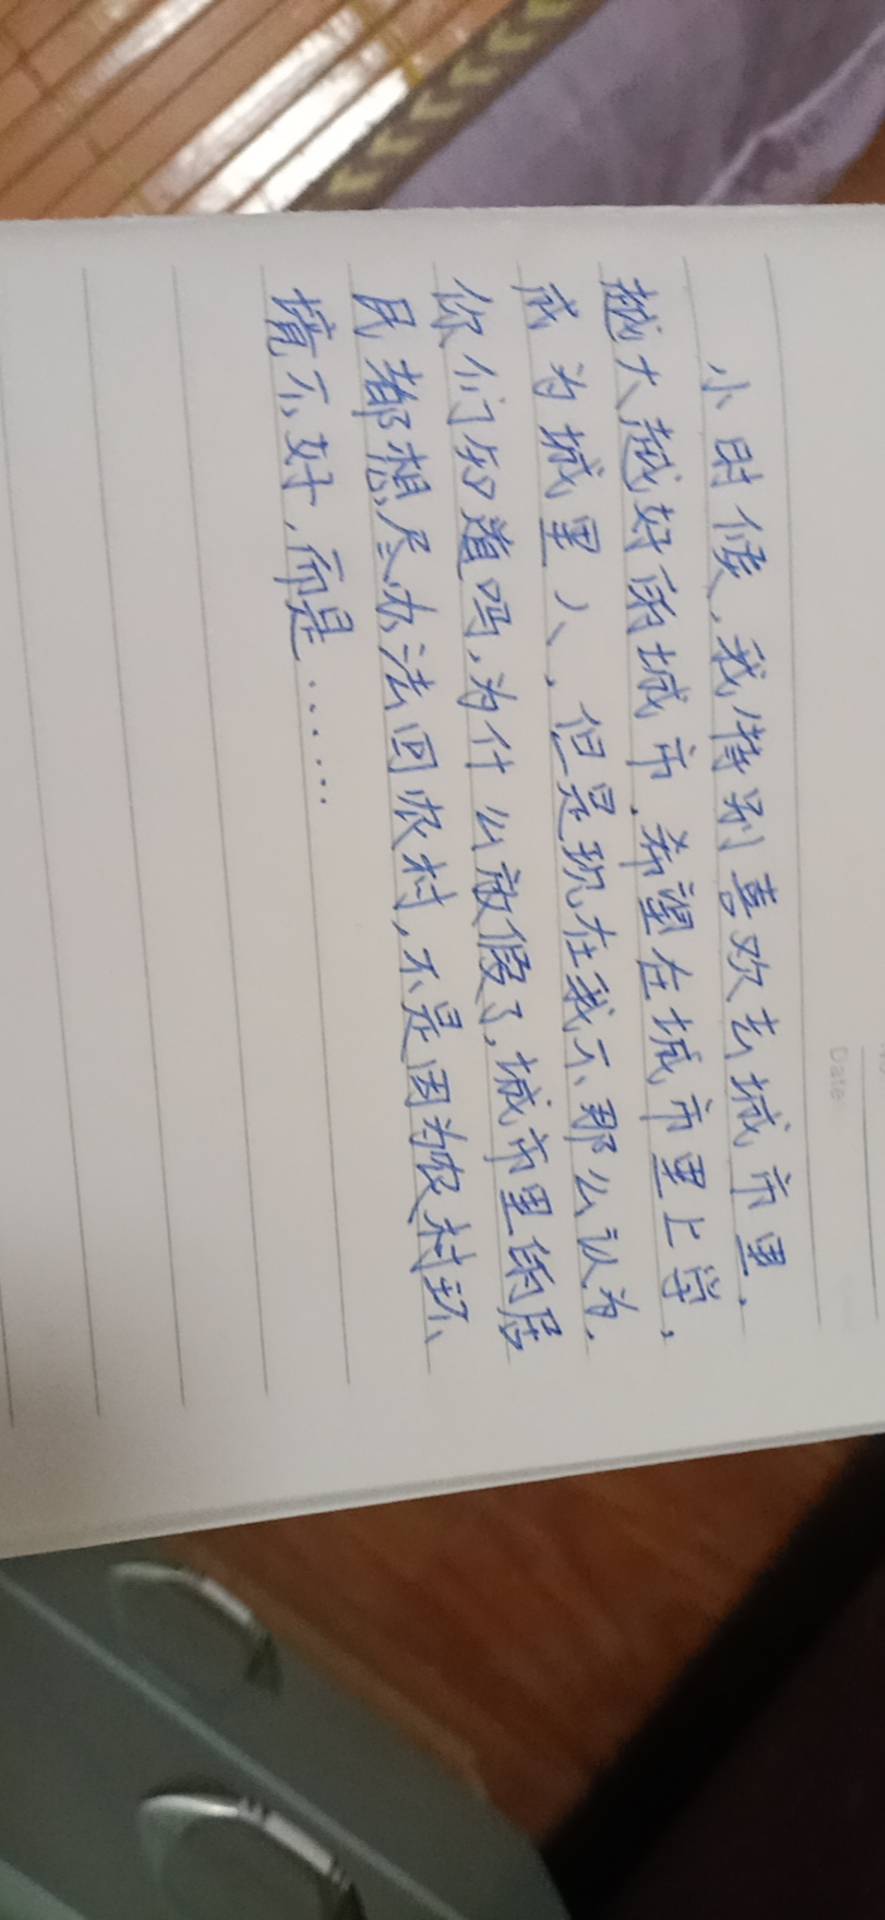 Date
小时候，我特别喜欢去城市里，
越大越好的城市，希望在城市里上学，
成为城里人，但是现在我不那么认为，
你们知道吗，为什么放假了，城市里的居
民都想尽办法回农村，不是因为农村环
境不好，而是……